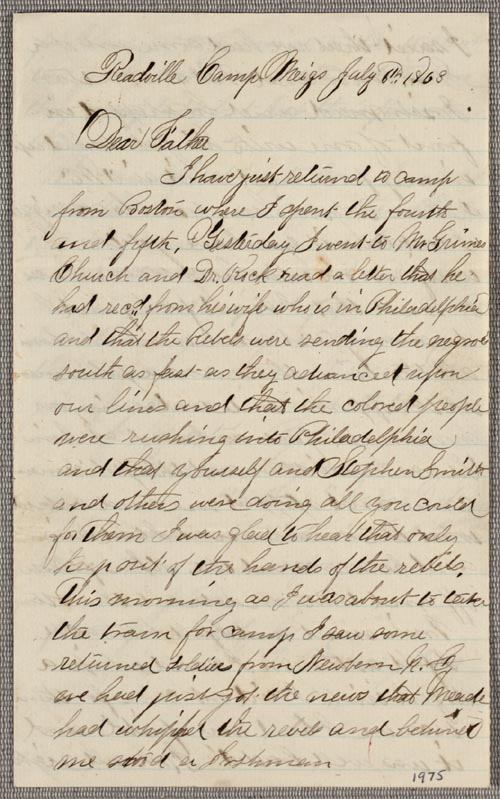 Readville Camp Meigs July 6th 1863
Dear Father
I have just returned to camp
from Boston where I spent the fourth
and fifth, Yesterday I went to Mr Grimes
Church and Dr. Rock read a letter that he
had recd. from his wife who is in Philadelphia
and that the Rebels were sending the negroes
south as fast as they advanced upon
our lines and that the colored people
were rushing into Philadelphia
and that yourself and Stephen Smith
and others were doing all you could
for them I was glad to hear that only
keep out of the hands of the rebels.
This morning as I was about to take
the train for camp I saw some
returned soldiers from Newbern N. C.
we had just got the news that Meade
had whipped the rebels and behind
me stood a Irishman
1975